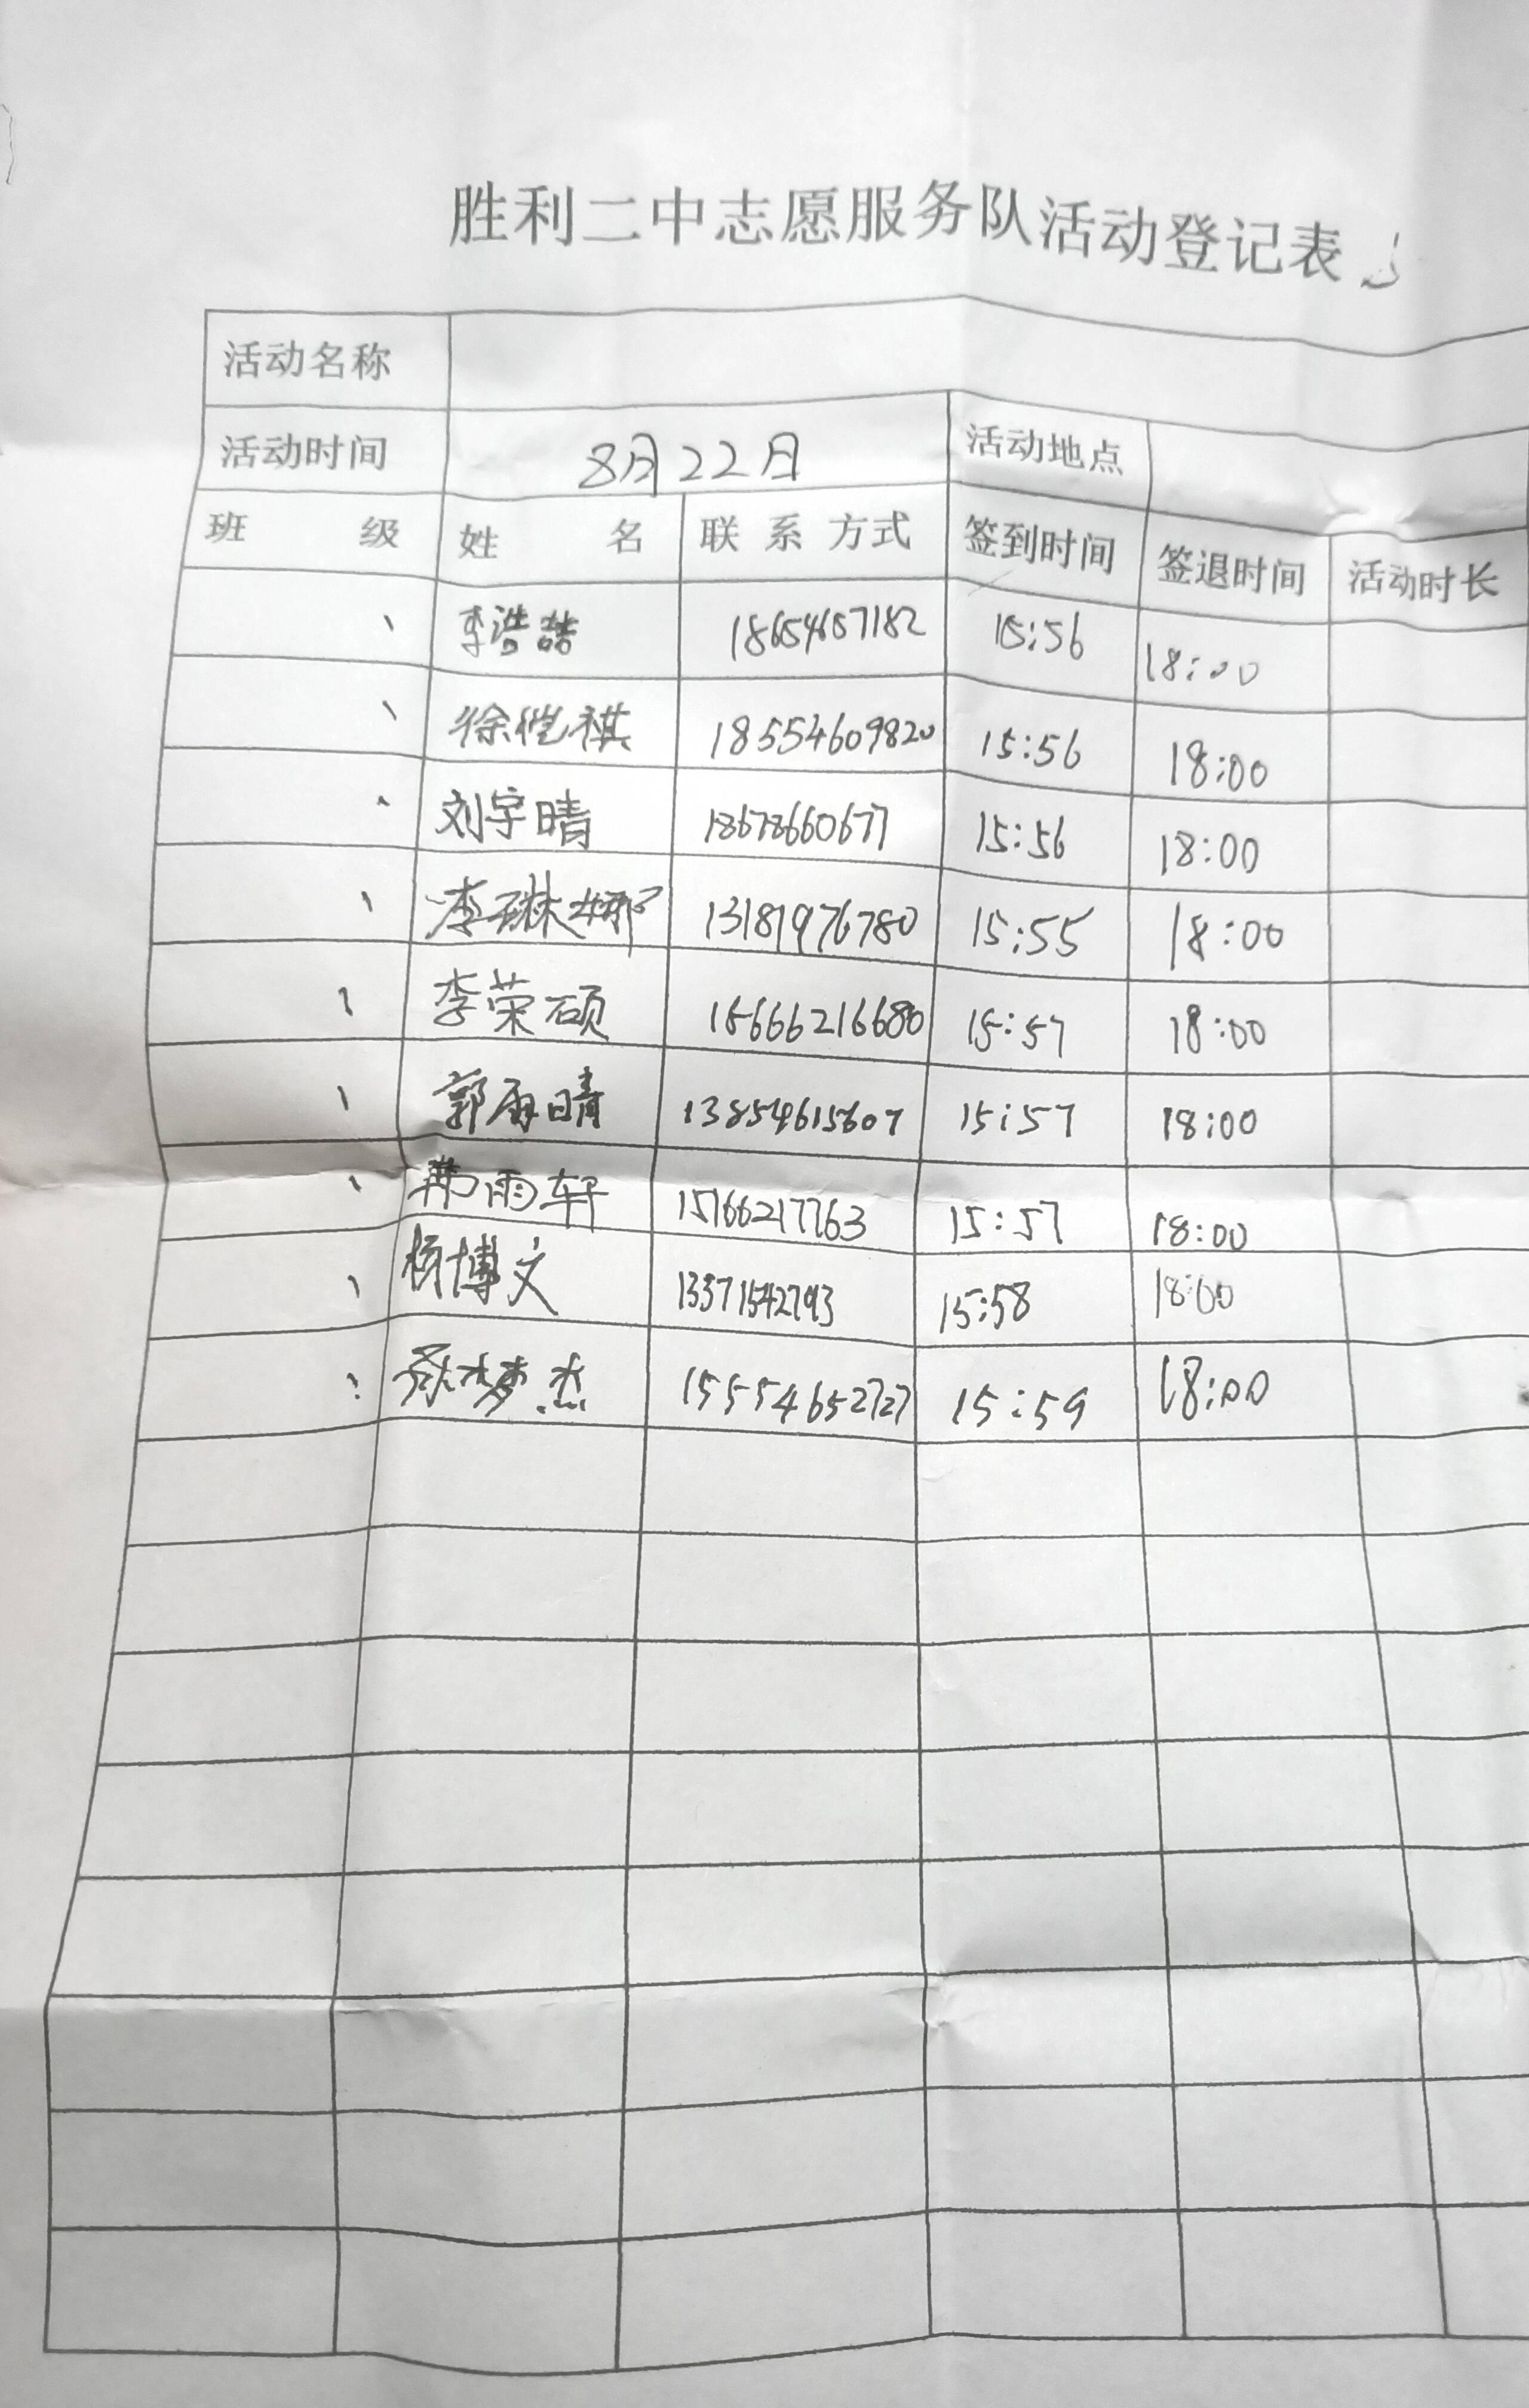 胜利二中志愿服务队活动登记表
活动名称
活动时间 8月22日 活动地点
班 级 姓 名 联系方式 签到时间 签退时间 活动时长
李浩喆 18654607182 15:56 18:00
徐恺祺 18554609820 15:56 18:00
刘宇晴 18678660677 15:56 18:00
李琳娜 13181976780 15:55 18:00
李荣硕 15666216680 15:57 18:00
郭雨晴 13854615607 15:57 18:00
雨轩 15166217763 15:57 18:00
杨博文 13371542793 15:58 18:00
梦杰 15554652727 15:59 18:00